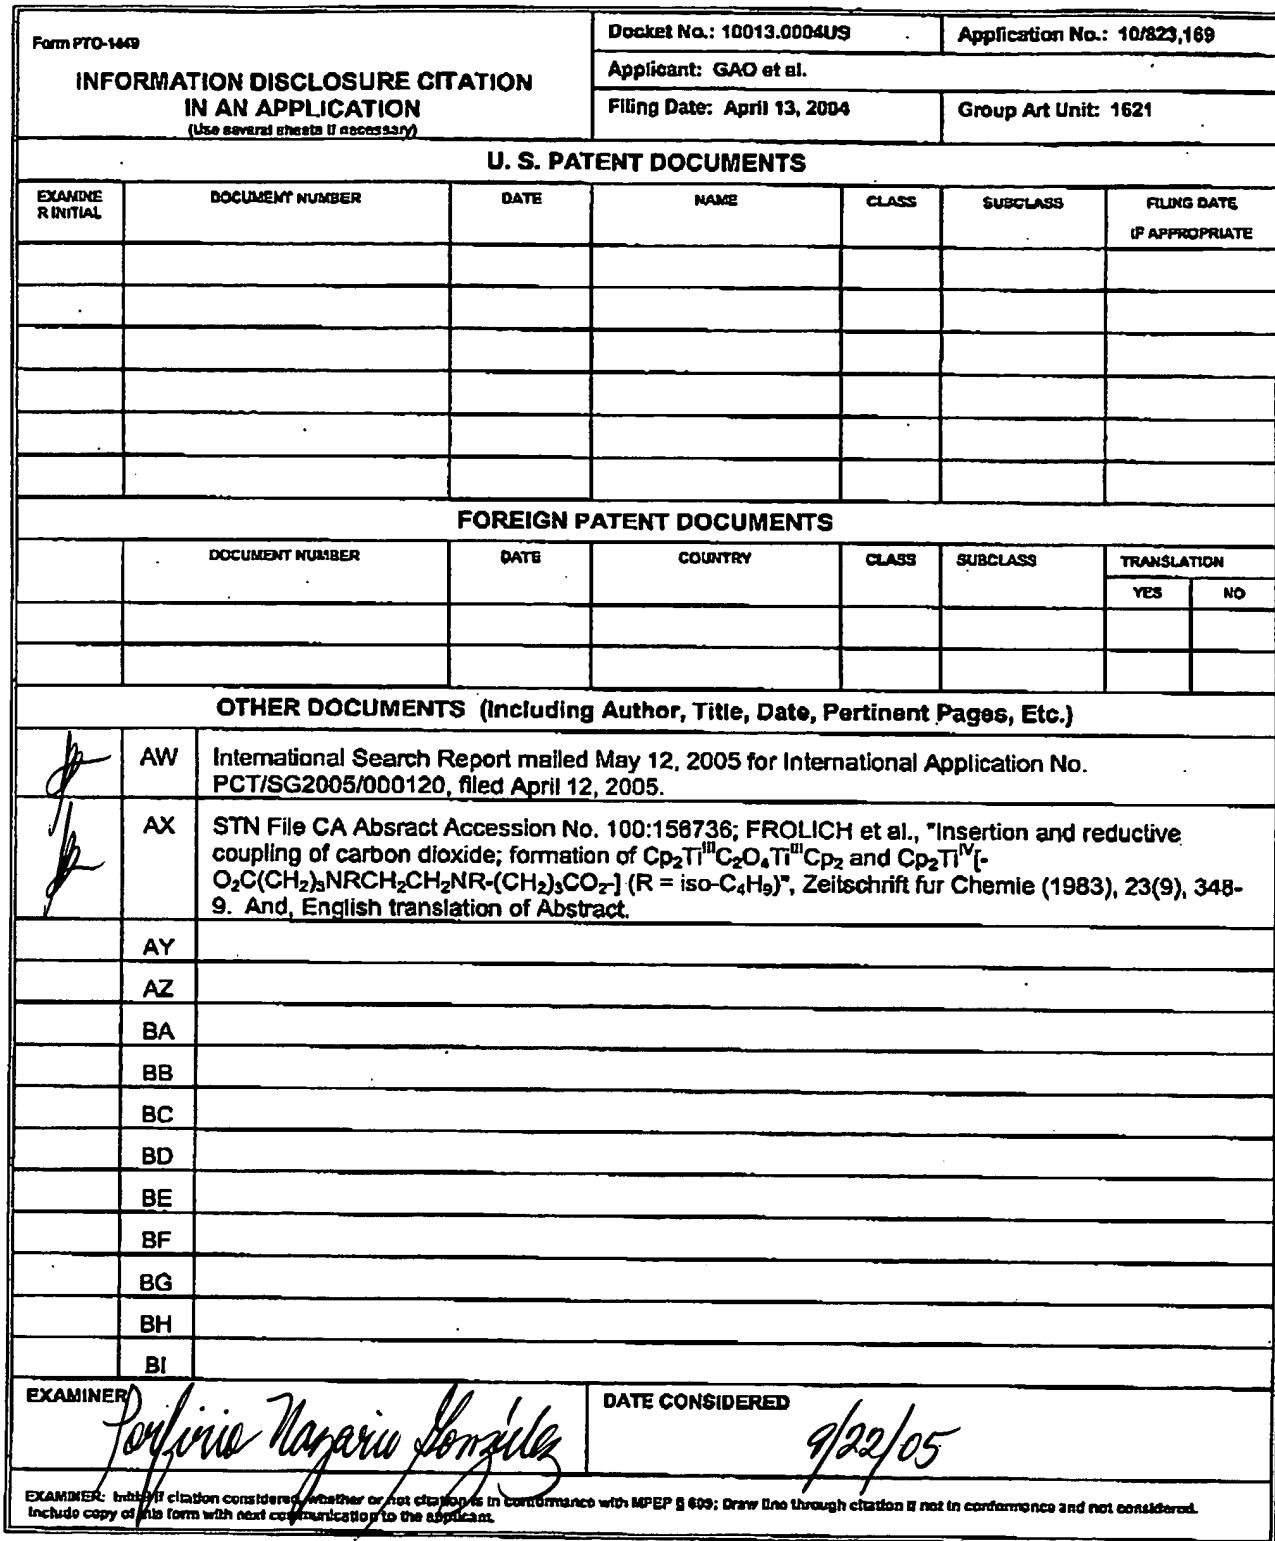 Form PTO-1449
INFORMATION DISCLOSURE CITATION
IN AN APPLICATION
(Use several sheets if necessary)
Docket No.: 10013.0004US
Application No.: 10/823,169
Applicant: GAO et al.
Filing Date: April 13, 2004
Group Art Unit: 1621
U. S. PATENT DOCUMENTS
EXAMINE
R INITIAL
DOCUMENT NUMBER
DATE
NAME
CLASS
SUBCLASS
FILING DATE
IF APPROPRIATE
FOREIGN PATENT DOCUMENTS
DOCUMENT NUMBER
DATE
COUNTRY
CLASS
SUBCLASS
TRANSLATION
YES
NO
OTHER DOCUMENTS (Including Author, Title, Date, Pertinent Pages, Etc.)
AW
International Search Report mailed May 12, 2005 for International Application No.
PCT/SG2005/000120, filed April 12, 2005.
AX
STN File CA Absract Accession No. 100:156736; FROLICH et al., "Insertion and reductive
coupling of carbon dioxide; formation of Cp₂TiᴵᴵᴵC₂O₄TiᴵᴵᴵCp₂ and Cp₂Tiᴵⱽ[-
O₂C(CH₂)₃NRCH₂CH₂NR-(CH₂)₃CO₂-] (R = iso-C₄H₉)", Zeitschrift fur Chemie (1983), 23(9), 348-
9. And, English translation of Abstract.
AY
AZ
BA
BB
BC
BD
BE
BF
BG
BH
BI
EXAMINER
Porfirio Nazario González
DATE CONSIDERED
9/22/05
EXAMINER: Initial if citation considered, whether or not citation is in conformance with MPEP § 609; Draw line through citation if not in conformance and not considered.
Include copy of this form with next communication to the applicant.